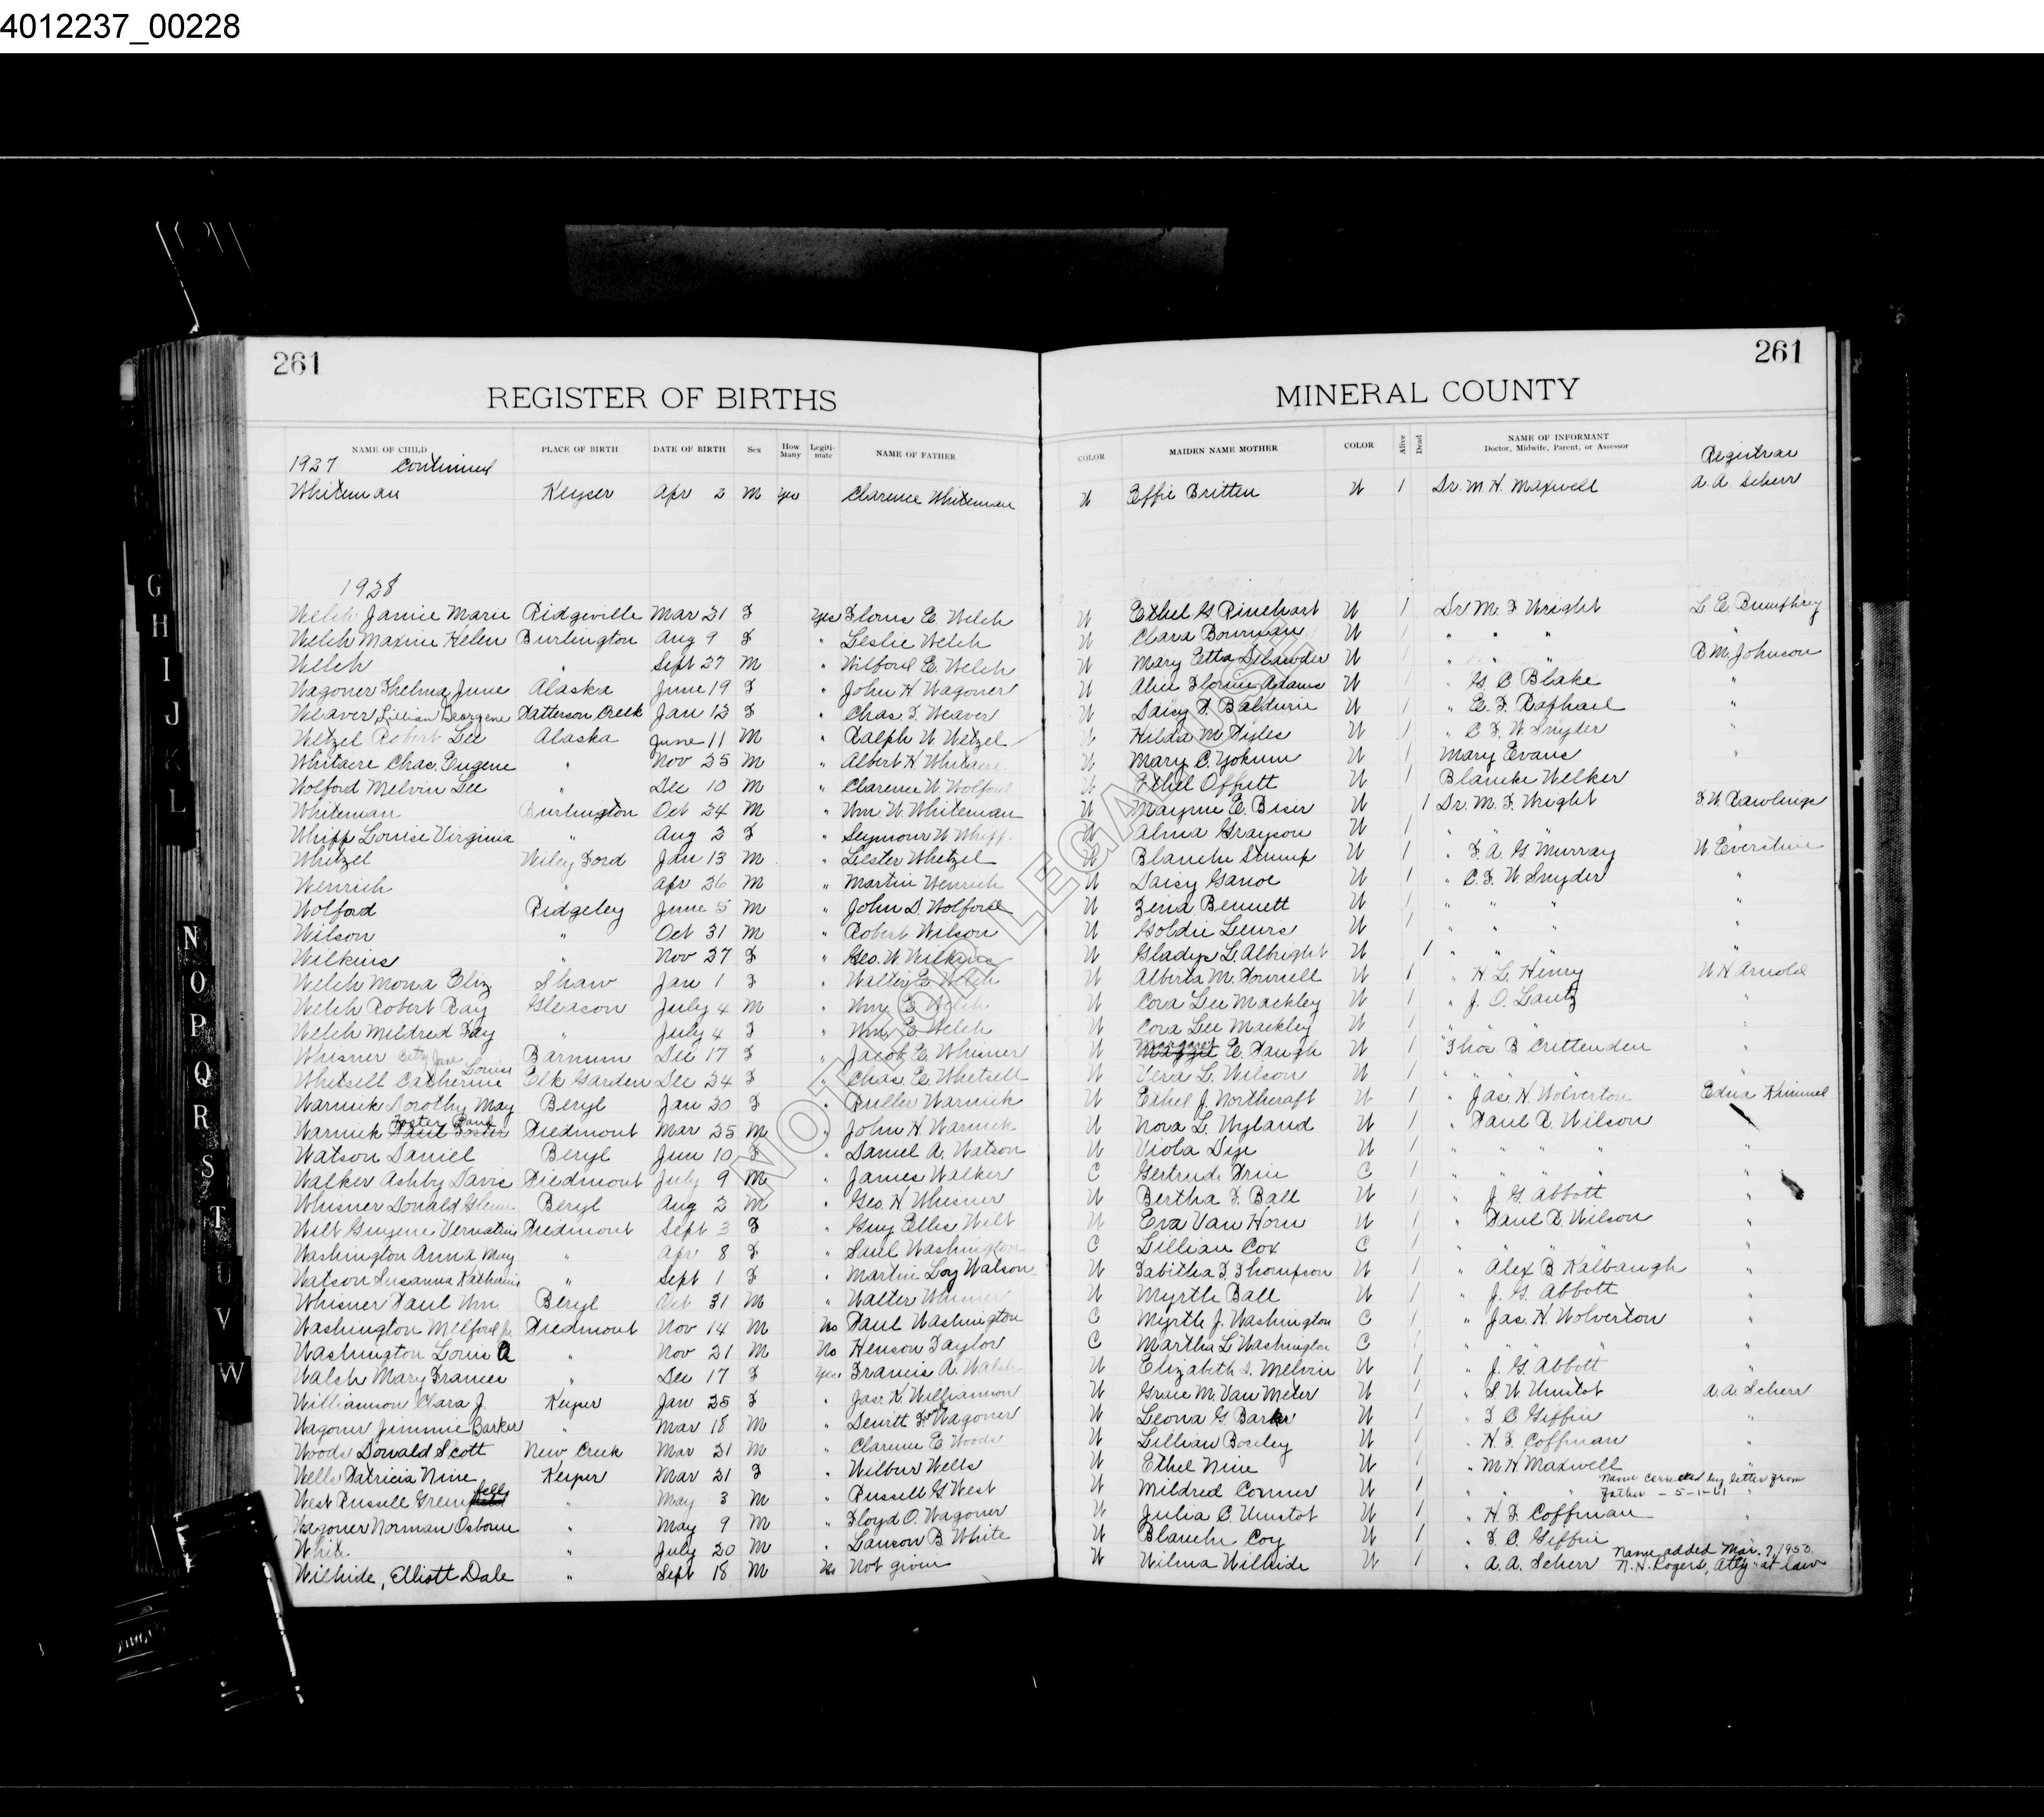 4012237_00228
261 261
REGISTER OF BIRTHS MINERAL COUNTY
NAME OF CHILD PLACE OF BIRTH DATE OF BIRTH Sex How Many Legiti-mate NAME OF FATHER COLOR MAIDEN NAME MOTHER COLOR Alive Dead NAME OF INFORMANT Doctor, Midwife, Parent, or Assessor Registrar
1927 Continued
Whiteman Keyser Apr 2 M yes Clarence Whiteman W Effie Britten W 1 Dr. M H. Maxwell A. A. Scherr
1928
Welch Janie Marie Ridgeville Mar 21 F Yes E. Welch W Ethel G Rinehart W 1 Dr M. F Wright L E Bumphrey
Welch Maxine Helen Burlington Aug 9 F " Leslie Welch W Clara Bowman W 1 " " " "
Welch " Sept 27 M " Wilford E. Welch W Mary Etta Delawder W 1 " " " B M Johnson
Wagoner Thelma June Alaska June 19 F " John H Wagoner W Alice Adams W 1 " G C Blake "
Weaver Lillian Patterson Creek Jan 13 F " Chas. F. Weaver W Daisy F. W 1 " E. F. Raphael "
Wetzel Robert Lee Alaska June 11 M " Ralph W Wetzel W Hilda M Pyles W 1 " C F. W Snyder "
Whitacre Chas. Eugene " Nov 25 M " Albert H Whitacre W Mary C. Yokum W 1 Mary Evans "
Wolford Melvin Lee " Dec 10 M " Clarence W. Wolford W Ethel Offutt W 1 Blanche Welker
Whiteman Burlington Oct 24 M " Wm. W. Whiteman W Mayme E. W 1 Dr. M. F. Wright F W Rawlings
Whipp Louise Virginia " Aug 2 F " Seymour W Whipp W Alma Grayson W 1 " " " "
Whetzel Wiley Ford Jan 13 M " Lester Whetzel W Blanche Stump W 1 " F. A. G Murray W Everstine
Wenrich " Apr 26 M " Martin Wenrich W Daisy Ganoe W 1 " C. F. W Snyder "
Wolford Ridgeley June 5 M " John D. Wolford W Zena Bennett W 1 " " " "
Wilson " Oct 31 M " Robert Wilson W Goldie Lewis W 1 " " " "
Wilkins " Nov 27 F " Geo. W. Wilkins W Gladys L. Albright W 1 " " " "
Welch Mona Eliz Shaw Jan 1 F " Walter E Welch W Alberta M. W 1 " H. L. Henry W H Arnold
Welch Robert Ray Gleason July 4 M " Wm. E Welch W Cora Lee Mackley W 1 " J. O. Lantz "
Welch Mildred Fay " July 4 F " Wm E Welch W Cora Lee Mackley W 1 " "
Whisner Betty Jane Barnum Dec 17 F " Jacob E. Whisner W Margaret E. Paugh W 1 " Thos B Crittenden "
Whetsell Catherine Louise Elk Garden Dec 24 F " Chas. E. Whetsell W Vera L. Wilson W 1 " " " "
Warnick Dorothy May Beryl Jan 20 F " Warnick W Ethel J. Northcraft W 1 " Jas. H. Wolverton Edna Kimmel
Warnick Foster Paul Piedmont Mar 25 M " John H. Warnick W Nova L. Wyland W 1 " Paul R. Wilson
Watson Daniel Beryl Jun 10 F " Daniel A. Watson W Viola Dye W 1 " " " "
Walker Ashby Davis Piedmont July 9 M " James Walker C Gertrude C 1 " " " "
Whisner Donald Glenn Beryl Aug 2 M " Geo. H. Whisner W Bertha F. Ball W 1 " J. G. Abbott "
Wilt Piedmont Sept 3 F " Guy Ellis Wilt W Eva Van Horn W 1 " Paul R. Wilson "
Washington Anna May " Apr 8 F " Washington C Lillian Cox C 1 " " " "
Watson Susanna Katherine " Sept 1 F " Martin Loy Watson W Tabitha F. Thompson W 1 " Alex B Kalbaugh "
Whisner Paul Wm. Beryl Oct 31 M " Walter Whisner W Myrtle Ball W 1 " J. G. Abbott "
Washington Melford Jr Piedmont Nov 14 M No Paul Washington C Myrtle J. Washington C 1 " Jas. H. Wolverton "
Washington Louis A " Nov 21 M No Henson Taylor C Martha L Washington C 1 " " " "
Walsh Mary Frances " Dec 17 F Yes Francis A. Walsh W Elizabeth Melvin W 1 " J. G. Abbott "
Williamson Clara J. Keyser Jan 25 F " Jas. K. Williamson W Grace M. Van Meter W 1 " Umstot A. A. Scherr
Wagoner Jimmie Barker " Mar 18 M " Wagoner W Leona G Barker W 1 " F C. Giffin "
Woods Donald Scott New Creek Mar 21 M " Clarence E Woods W Lillian W 1 " H. F. Coffman "
Wells Patricia Nine Keyser Mar 21 F " Wilbur Wells W Ethel Nine W 1 " M. H. Maxwell
Name corrected by letter from
West Russell Greenfell " May 3 M " Russell G West W Mildred W 1 " " Father - 5-1-61 "
Wagoner Norman Osborne " May 9 M " Floyd O. Wagoner W Julia C. Umstot W 1 " H. F. Coffman "
White " July 20 M " B. White W Blanche Coy W 1 " F. C. Giffin
Name added Mar. 7, 1950.
Wilhide, Elliott Dale " Sept 18 M No Not given W Wilma Wilhide W 1 " A. A. Scherr N. H. Rogers, Atty at law
G
H
I
J
K
L
N
O
P
Q
R
S
T
U
V
W
NOT FOR LEGAL USE